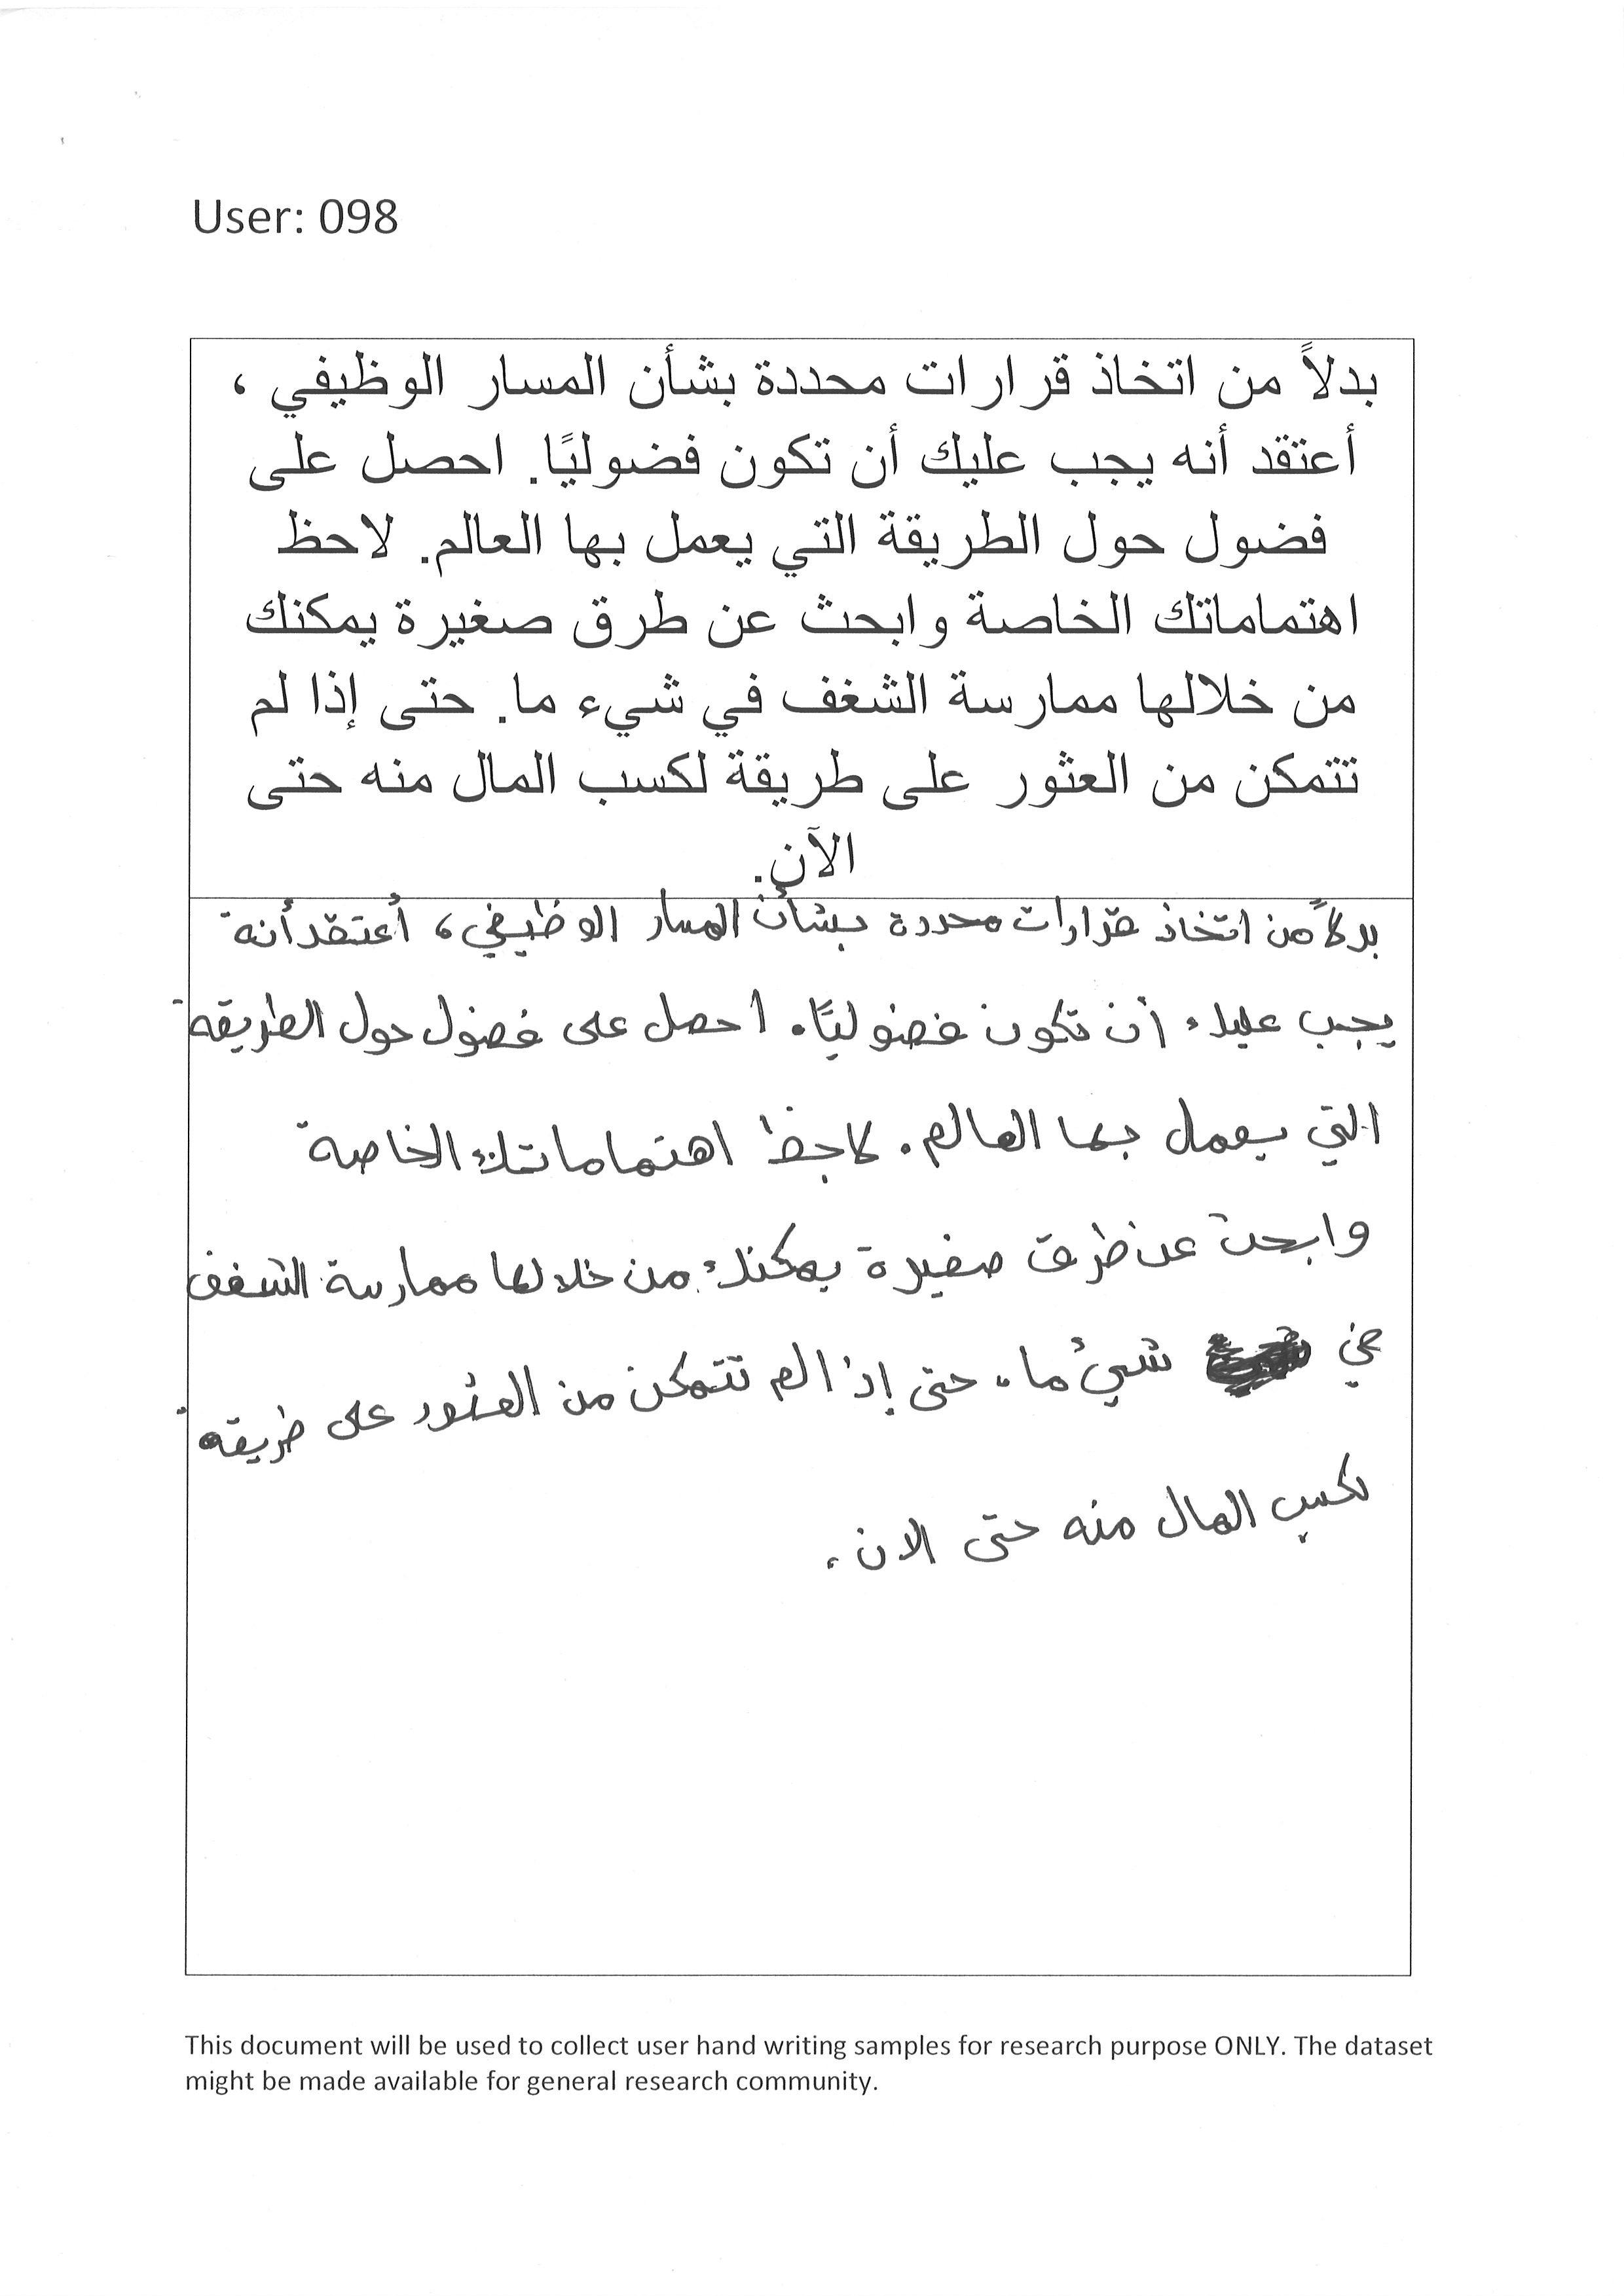 User: 098
بدلاً من اتخاذ قرارات محددة بشأن المسار الوظيفي ،
أعتقد أنه يجب عليك أن تكون فضوليًا. احصل على
فضول حول الطريقة التي يعمل بها العالم. لاحظ
اهتماماتك الخاصة وابحث عن طرق صغيرة يمكنك
من خلالها ممارسة الشغف في شيء ما. حتى إذا لم
تتمكن من العثور على طريقة لكسب المال منه حتى
الآن.
بدلاً من اتخاذ قرارات محددة بشأن المسار الوظيفي، أعتقد أنه
يجب عليك أن تكون فضوليًا. احصل على فضول حول الطريقة
التي يعمل بها العالم. لاحظ اهتماماتك الخاصة
وابحث عن طرق صغيرة يمكنك من خلالها ممارسة الشغف
في شيء ما. حتى إذا لم تتمكن من العثور على طريقة
لكسب المال منه حتى الان.
This document will be used to collect user hand writing samples for research purpose ONLY. The dataset
might be made available for general research community.